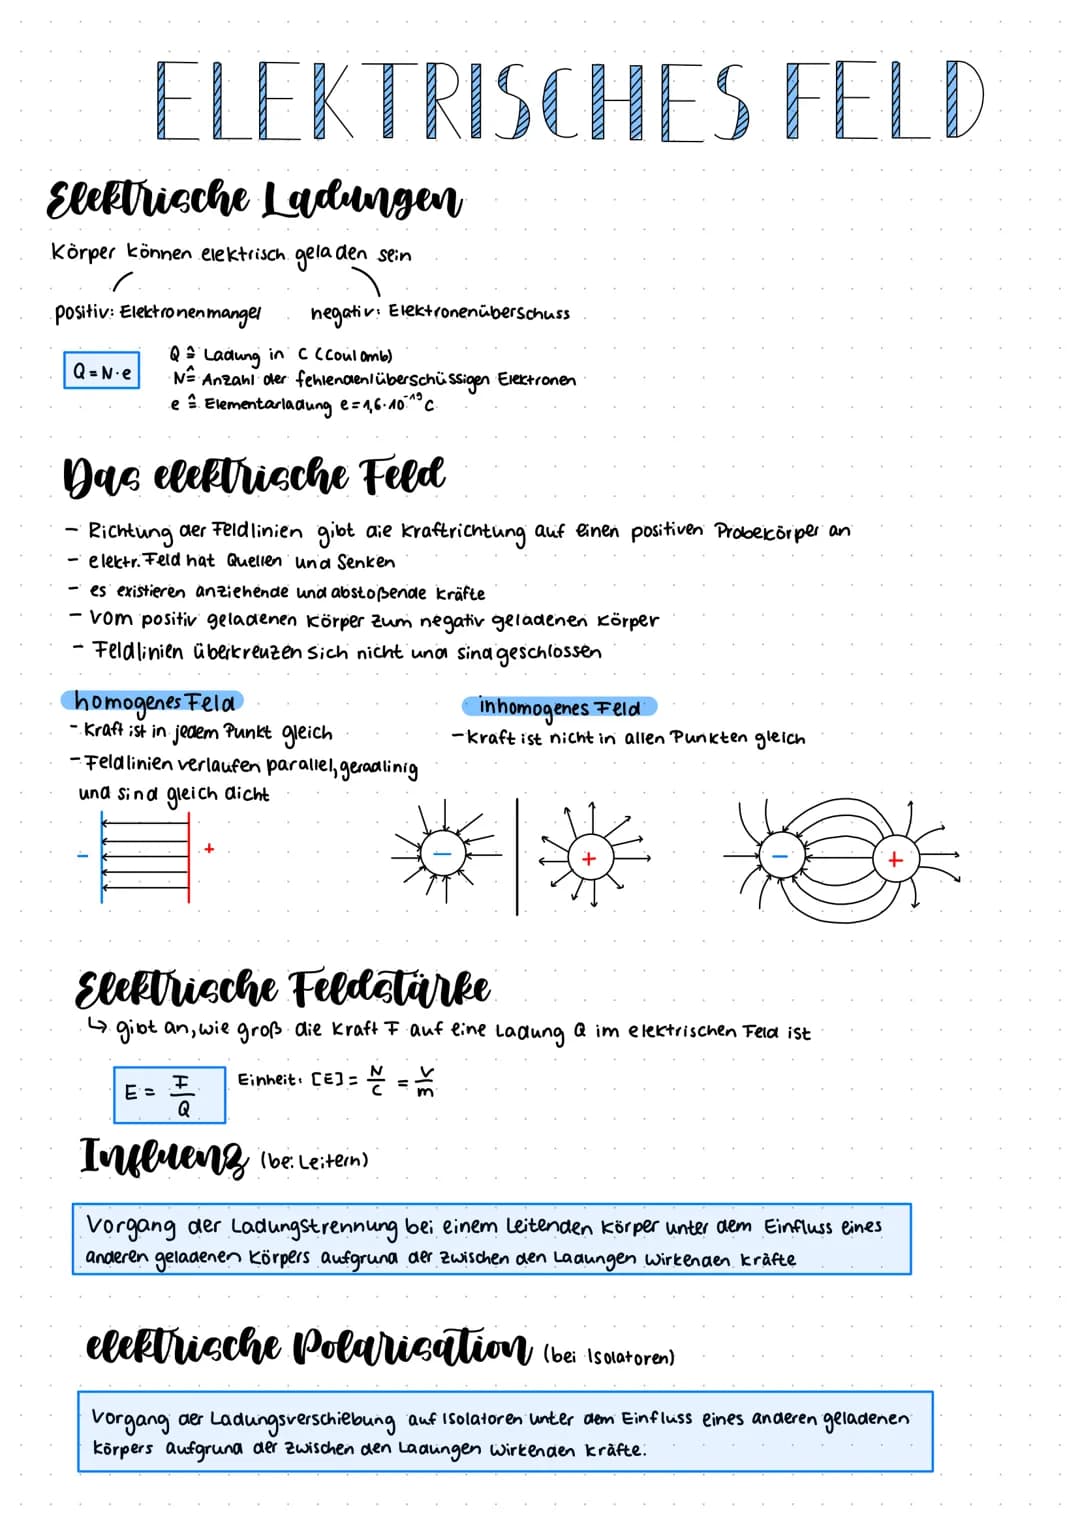 ELEKTRISCHES FELD
Elektrische Ladungen
Körper können elektrisch geladen sein
positiv: Elektronenmangel negativ: Elektronenüberschuss
Q = N·e
Q ≙ Ladung in C (Coulomb)
N ≙ Anzahl der fehlenden/überschüssigen Elektronen
e ≙ Elementarladung e = 1,6·10⁻¹⁹ C
Das elektrische Feld
- Richtung der Feldlinien gibt die Kraftrichtung auf einen positiven Probekörper an
- elektr. Feld hat Quellen und Senken
- es existieren anziehende und abstoßende Kräfte
- vom positiv geladenen Körper zum negativ geladenen Körper
- Feldlinien überkreuzen sich nicht und sind geschlossen
homogenes Feld
- Kraft ist in jedem Punkt gleich
- Feldlinien verlaufen parallel, geradlinig
und sind gleich dicht
inhomogenes Feld
- Kraft ist nicht in allen Punkten gleich
- +
- | +
- +
Elektrische Feldstärke
↳ gibt an, wie groß die Kraft F auf eine Ladung Q im elektrischen Feld ist
E = F/Q Einheit: [E] = N/C = V/m
Influenz (bei Leitern)
Vorgang der Ladungstrennung bei einem leitenden Körper unter dem Einfluss eines
anderen geladenen Körpers aufgrund der zwischen den Ladungen wirkenden Kräfte
elektrische Polarisation (bei Isolatoren)
Vorgang der Ladungsverschiebung auf Isolatoren unter dem Einfluss eines anderen geladenen
Körpers aufgrund der zwischen den Ladungen wirkenden Kräfte.